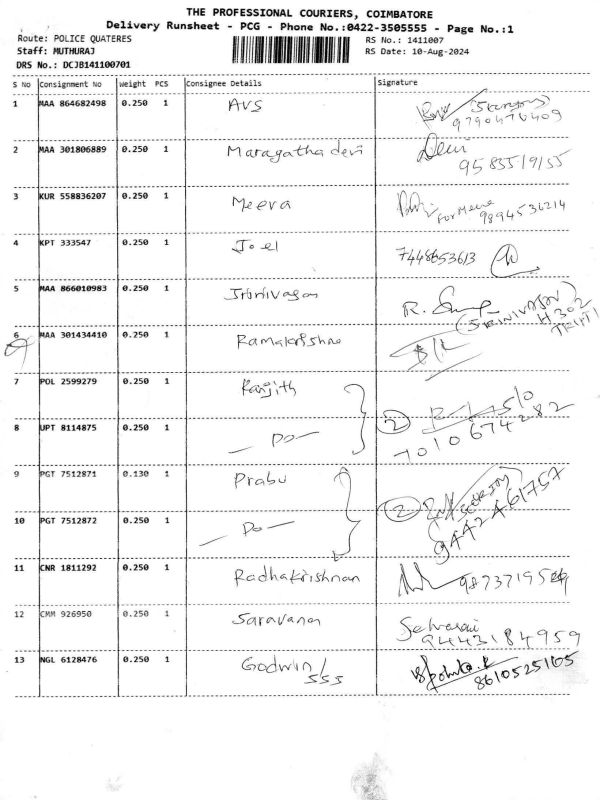 THE PROFESSIONAL COURIERS, COIMBATORE
Delivery Runsheet - PCG - Phone No.:0422-3505555 - Page No.:1
Route: POLICE QUATERES RS No.: 1411007
Staff: MUTHURAJ RS Date: 10-Aug-2024
DRS No.: DCJB141100701
S No Consignment No Weight PCS Consignee Details Signature
1 MAA 864682498 0.250 1 AVS
9790476409
2 MAA 301806889 0.250 1 Maragatha devi Devi
9585519155
3 KUR 558836207 0.250 1 Meera For Meera
9894536214
4 KPT 333547 0.250 1 Joel 7448653613
5 MAA 866010983 0.250 1 Srinivasan R.
(SRINIVASAN)
H302
6 MAA 301434410 0.250 1 Ramakrishna
7 POL 2599279 0.250 1 Ranjith
8 UPT 8114875 0.250 1 — Do — 2
7010674282
9 PGT 7512871 0.130 1 Prabu
10 PGT 7512872 0.250 1 — Do — 2
9442461757
11 CNR 1811292 0.250 1 Radhakrishnan
12 CMM 926950 0.250 1 Saravanan Selvarani
9443184959
13 NGL 6128476 0.250 1 Godwin/
555
8610525165